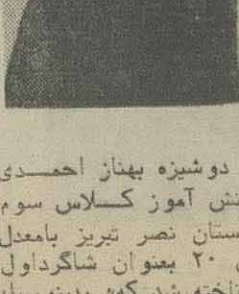 دوشیزه بهناز احمدی
نش آموز کلاس سوم
ستان نصر تبریز بامعدل
۲۰ بعنوان شاگرداول